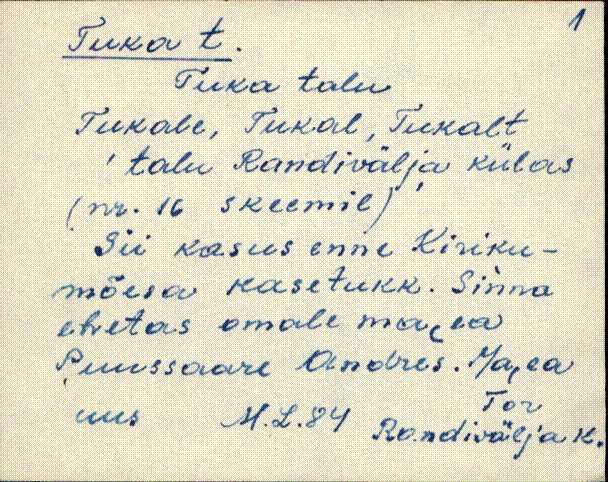 1
Tuka t.
Tuka talu
Tukale, Tukal, Tukalt
'talu Randivälja külas
(nr. 16 skeemil)
Sii kasus enne Kiriku-
mõesa kasetukk. Sinna
ehetas omale maea
Puussaare Andres. Maea
uus M.L.84 Tor
Randivälja k.